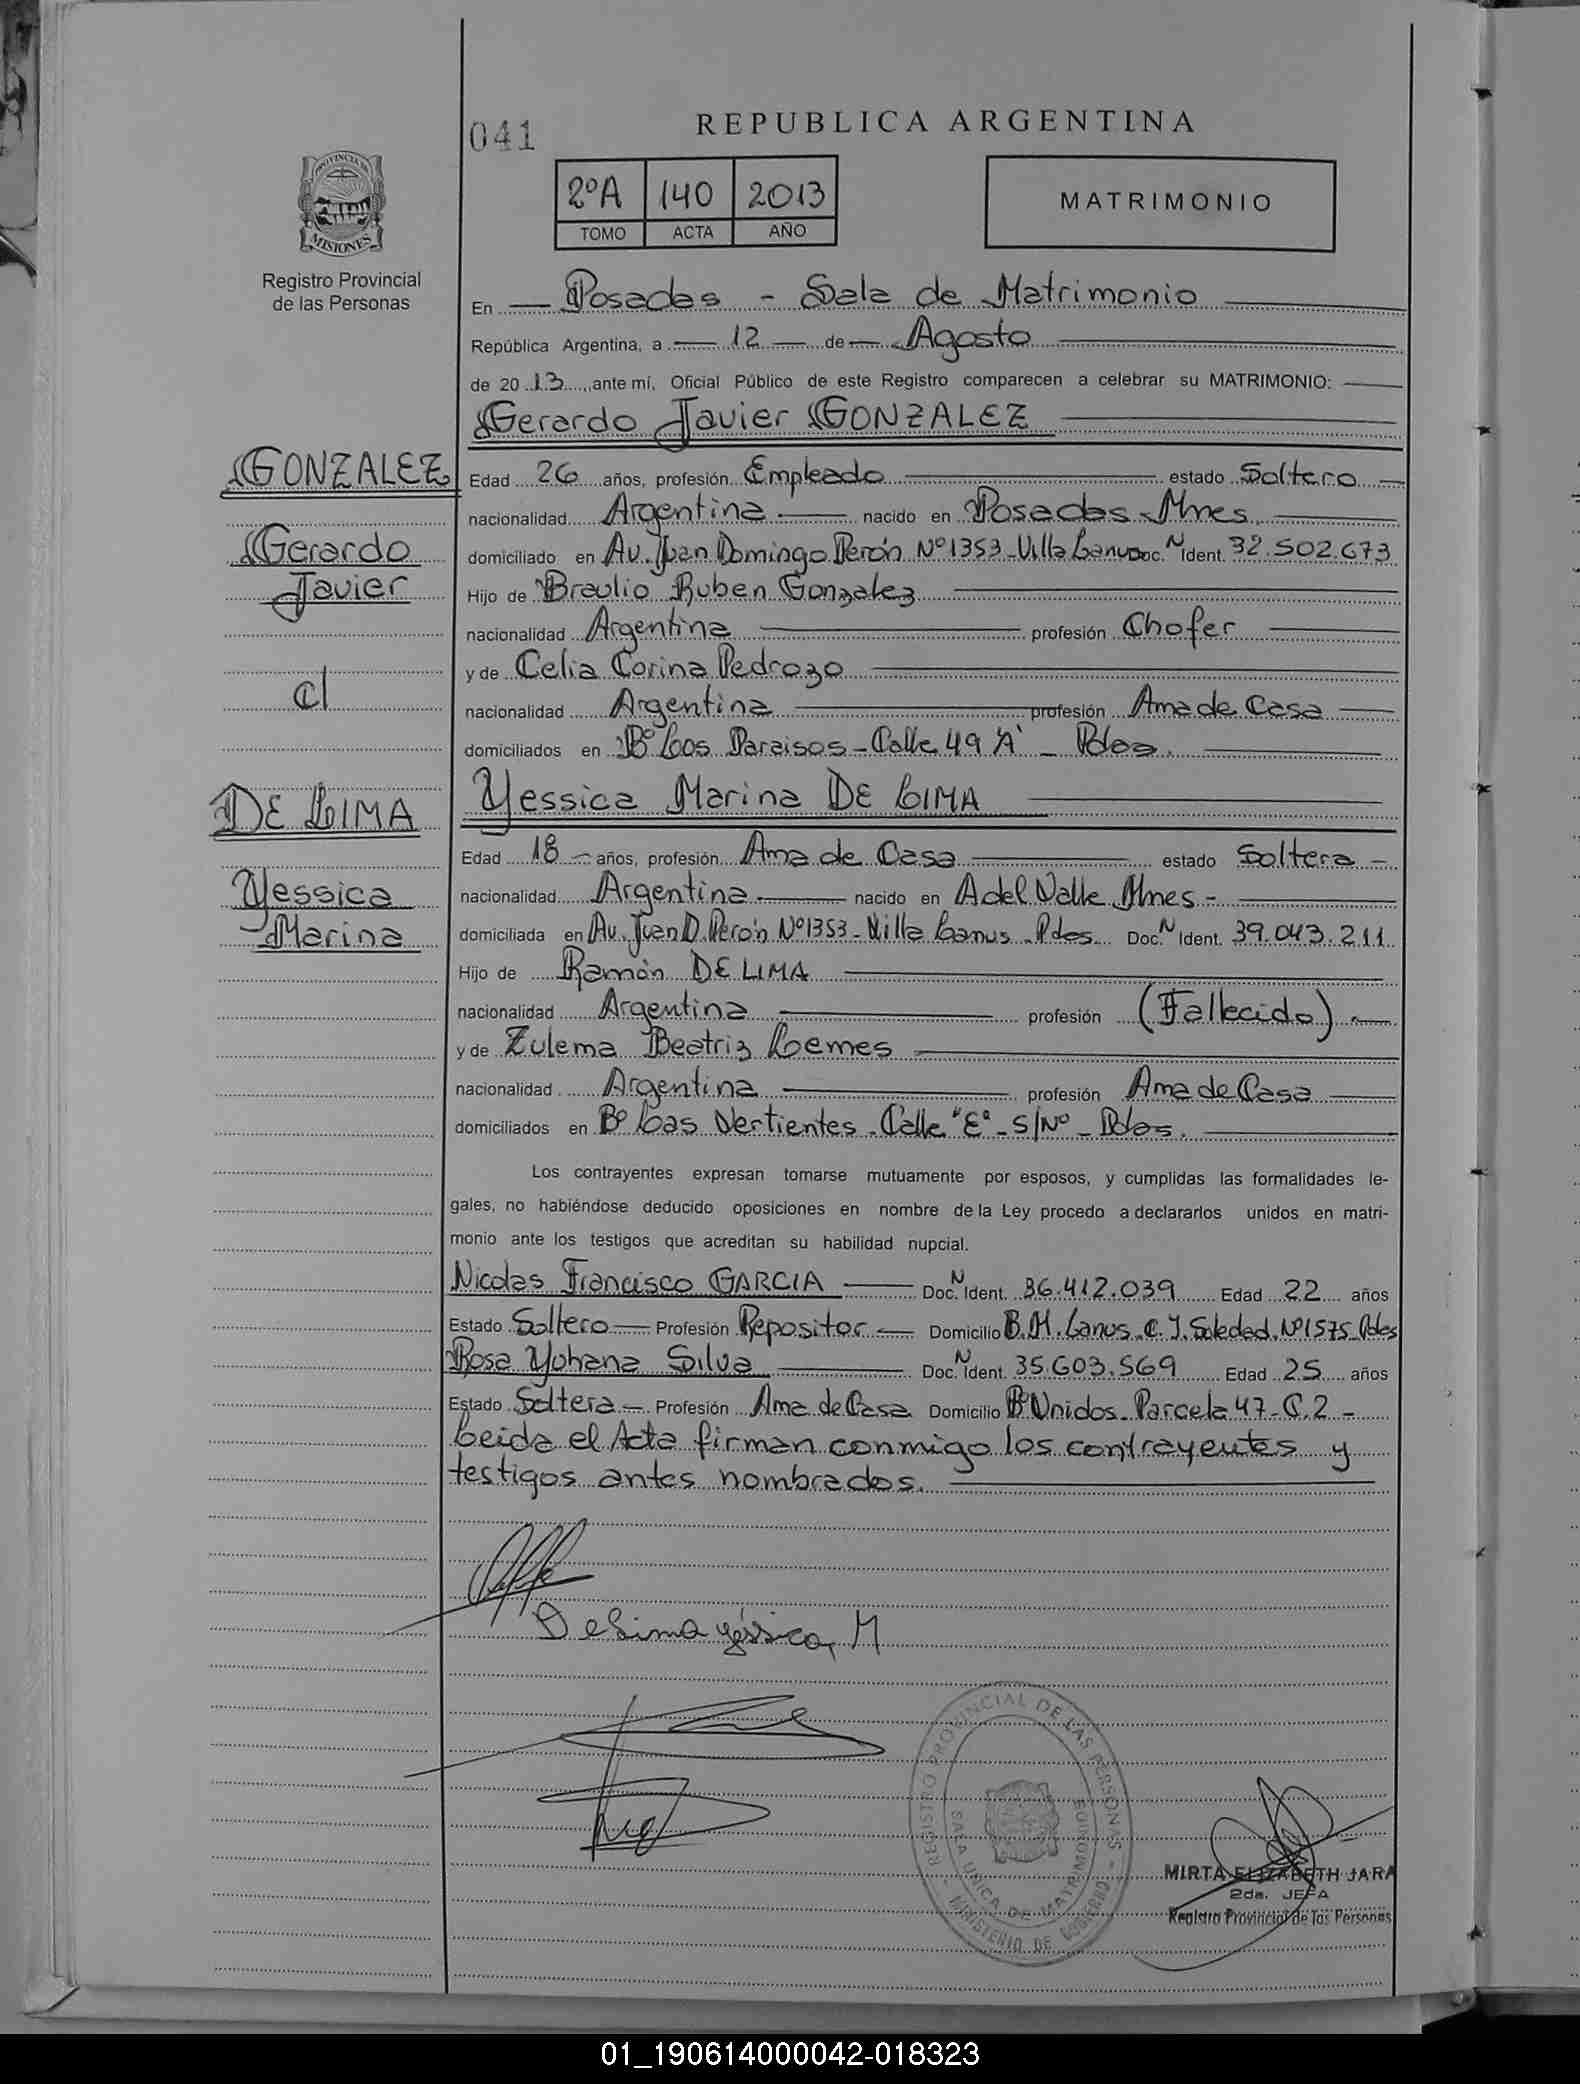 041
REPUBLICA ARGENTINA
2ºA 140 2013
TOMO ACTA AÑO
MATRIMONIO
PROVINCIA DE
MISIONES
Registro Provincial
de las Personas
En Posadas - Sala de Matrimonio
República Argentina, a 12 de Agosto
de 2013, ante mí, Oficial Público de este Registro comparecen a celebrar su MATRIMONIO:
Gerardo Javier GONZALEZ
GONZALEZ
Gerardo
Javier
c/
DE LIMA
Yessica
Marina
Edad 26 años, profesión Empleado estado Soltero
nacionalidad Argentina nacido en Posadas Mnes
domiciliado en Av. Juan Domingo Perón Nº1353-Villa Lanus Doc. N Ident. 32.502.673
Hijo de Braulio Ruben Gonzalez
nacionalidad Argentina profesión Chofer
y de Celia Corina Pedrozo
nacionalidad Argentina profesión Ama de Casa
domiciliados en Bº Los Paraisos - Calle 49 "A" - Pdas.
Yessica Marina DE LIMA
Edad 18 años, profesión Ama de Casa estado Soltera
nacionalidad Argentina nacido en A del Valle Mnes -
domiciliada en Av. Juan D. Perón Nº1353-Villa Lanus-Pdas. Doc. N Ident. 39.043.211
Hijo de Ramón DE LIMA
nacionalidad Argentina profesión (Fallecido)
y de Zulema Beatriz Lemes
nacionalidad Argentina profesión Ama de Casa
domiciliados en Bº Las Vertientes - Calle "E" - S/Nº - Pdas.
Los contrayentes expresan tomarse mutuamente por esposos, y cumplidas las formalidades le-
gales, no habiéndose deducido oposiciones en nombre de la Ley procedo a declararlos unidos en matri-
monio ante los testigos que acreditan su habilidad nupcial.
Nicolas Francisco GARCIA Doc. N Ident. 36.412.039 Edad 22 años
Estado Soltero Profesión Repositor Domicilio B.H. Lanus. C. J. Soledad. Nº1575 Pdas
Rosa Yohana Silva Doc. N Ident. 35.603.569 Edad 25 años
Estado Soltera Profesión Ama de Casa Domicilio Bº Unidos Parcela 47-C.2 -
Leida el Acta firman conmigo los contrayentes y
testigos antes nombrados.
De Lima yéssica, M
REGISTRO PROVINCIAL DE LAS PERSONAS
SALA UNICA DE MATRIMONIOS
MINISTERIO DE GOBIERNO
MIRTA ELIZABETH JARA
2da. JEFA
Registro Provincial de las Personas
01_190614000042-018323